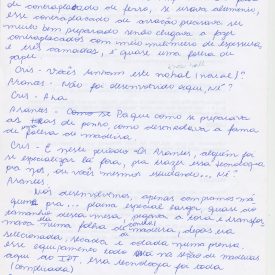 de contraplacados de ferro, se usava alumínio,
esse contraplacado de aviação precisava ser
muito bem preparado sendo chegava a fazer
contraplacados com meio milímetro de espessura,
e três camadas, é quase uma folha de
papel
Cris - Vocês tinham este
Arantes - Não foi desenvolvido aqui, né?
Cris - Aha
Arantes - Como se Da que como se preparava
as de pinho, como desenrolava a
folha de madeira.
Cris - E nesse período Dr Arantes, alguém foi
se especializar lá fora, pra trazer essa tecnologia
pra nós, ou vocês mesmos estudando... né?
Arantes
Nós desenvolvemos, apenas compramos na
pra... plaina especial larga, quase do
tamanho dessa mesa, pegava a tora e transfor-
mava numa folha de madeira, depois era
selecionada, secada e colada numa prensa
esse equipamento todo na seção de madeiras
aqui do IPT, essa tecnologia foi toda
(complicada)